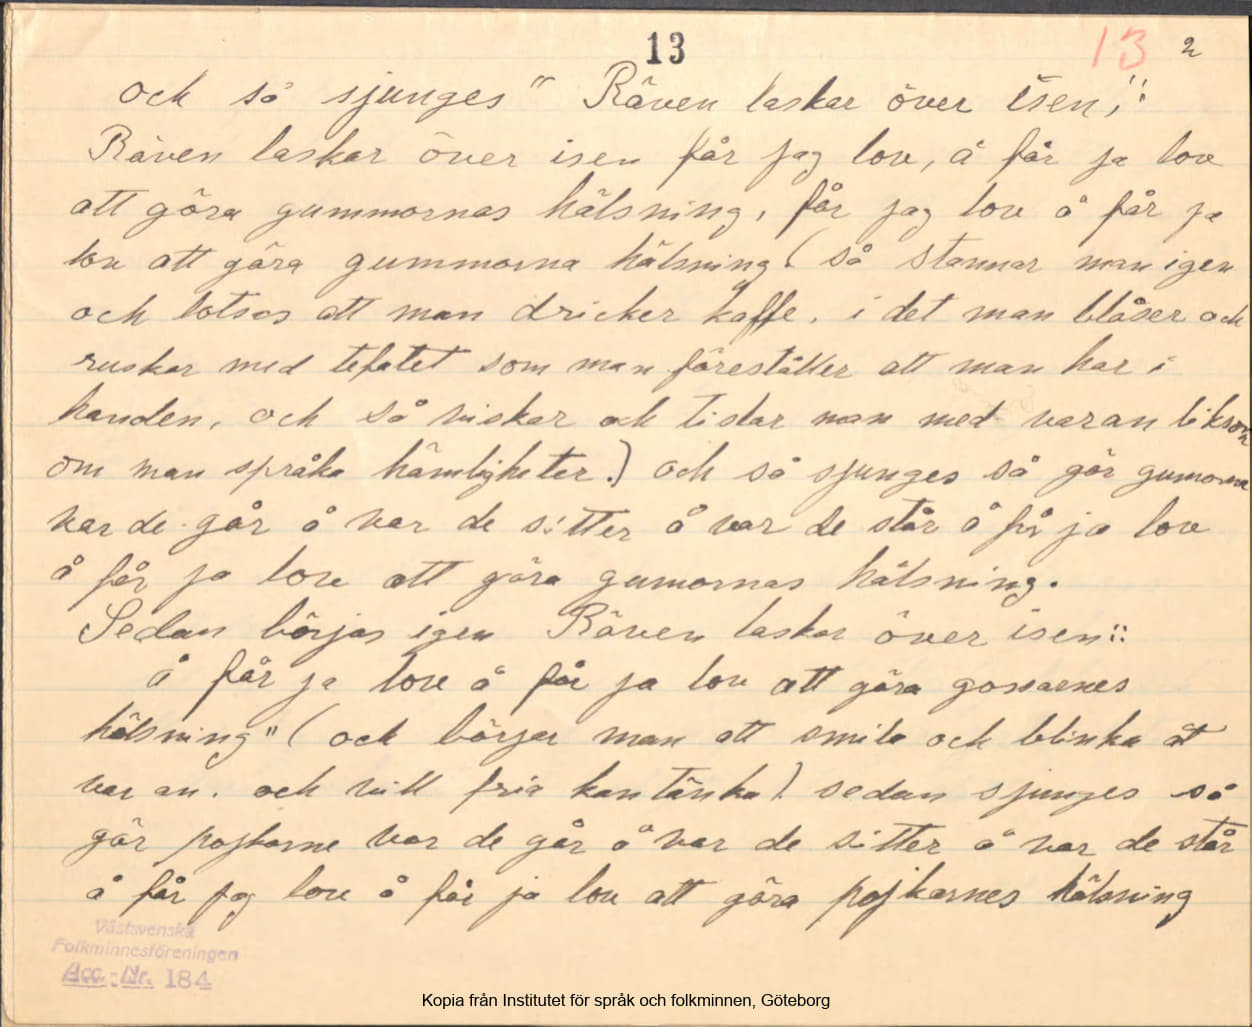 13
13 2
och så sjunges" Räven laskar över isen,":
Räven laskar över isen får jag lov, å får ja lov
att göra gummornas hälsning, får jag lov å får ja
lov att göra gummorna hälsning (så stannar man igen
och lotsas att man dricker kaffe, i det man blåser och
ruskar med tefatet som man föreställer att man har i
handen, och så viskar och tislar man med varan liksom
om man språka hämligheter.) och så sjunges så gör gumorna
var de går å var de sitter å var de står å får ja lov
å får ja lov att göra gumornas hälsning.
Sedan börjas igen Räven laskar över isen":
å får ja lov å får ja lov att göra gossarnes
hälsning" (och börjar man att smila och blinka åt
var an. och vill fria kan tänka) sedan sjunges så
gör pojkarne var de går å var de sitter å var de står
å får jag lov å får ja lov att göra pojkarnes hälsning
Västsvenska
Folkminnesföreningen
Acc.-Nr. 184
Kopia från Institutet för språk och folkminnen, Göteborg